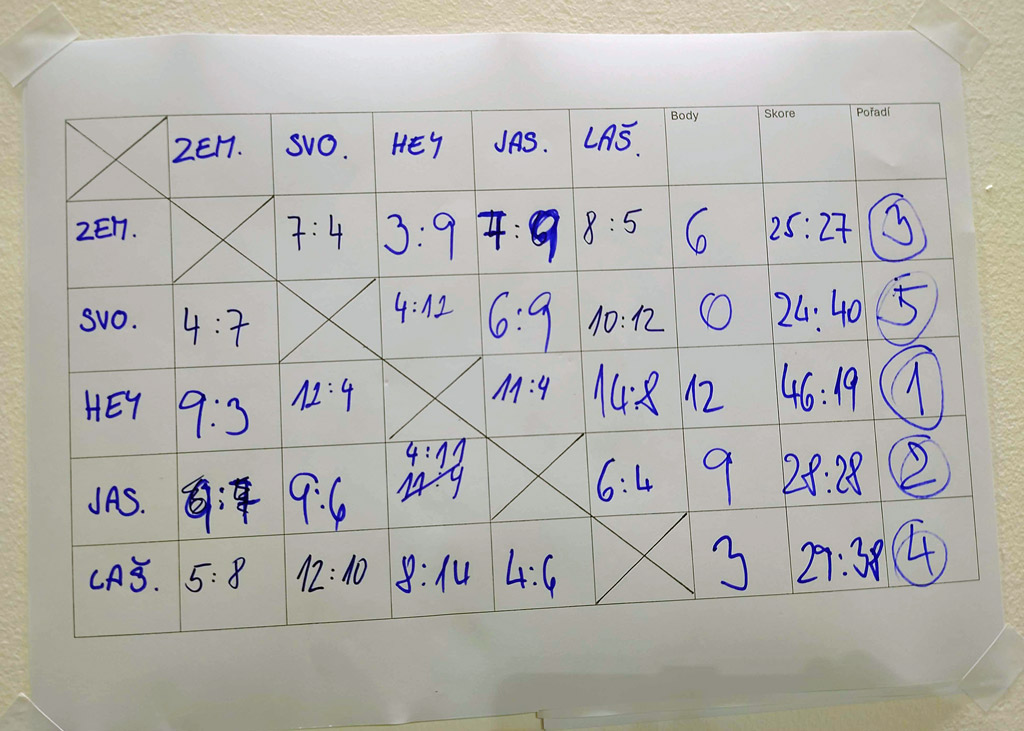 ZEM. SVO. HEY JAS. LAŠ. Body Skore Pořadí
ZEM. 7:4 3:9 7:9 8:5 6 25:27 3
SVO. 4:7 4:12 6:9 10:12 0 24:40 5
HEY 9:3 12:4 11:4 14:8 12 46:19 1
4:11
JAS. 9:7 9:6 11:4 6:4 9 28:28 2
LAŠ. 5:8 12:10 8:14 4:6 3 29:38 4